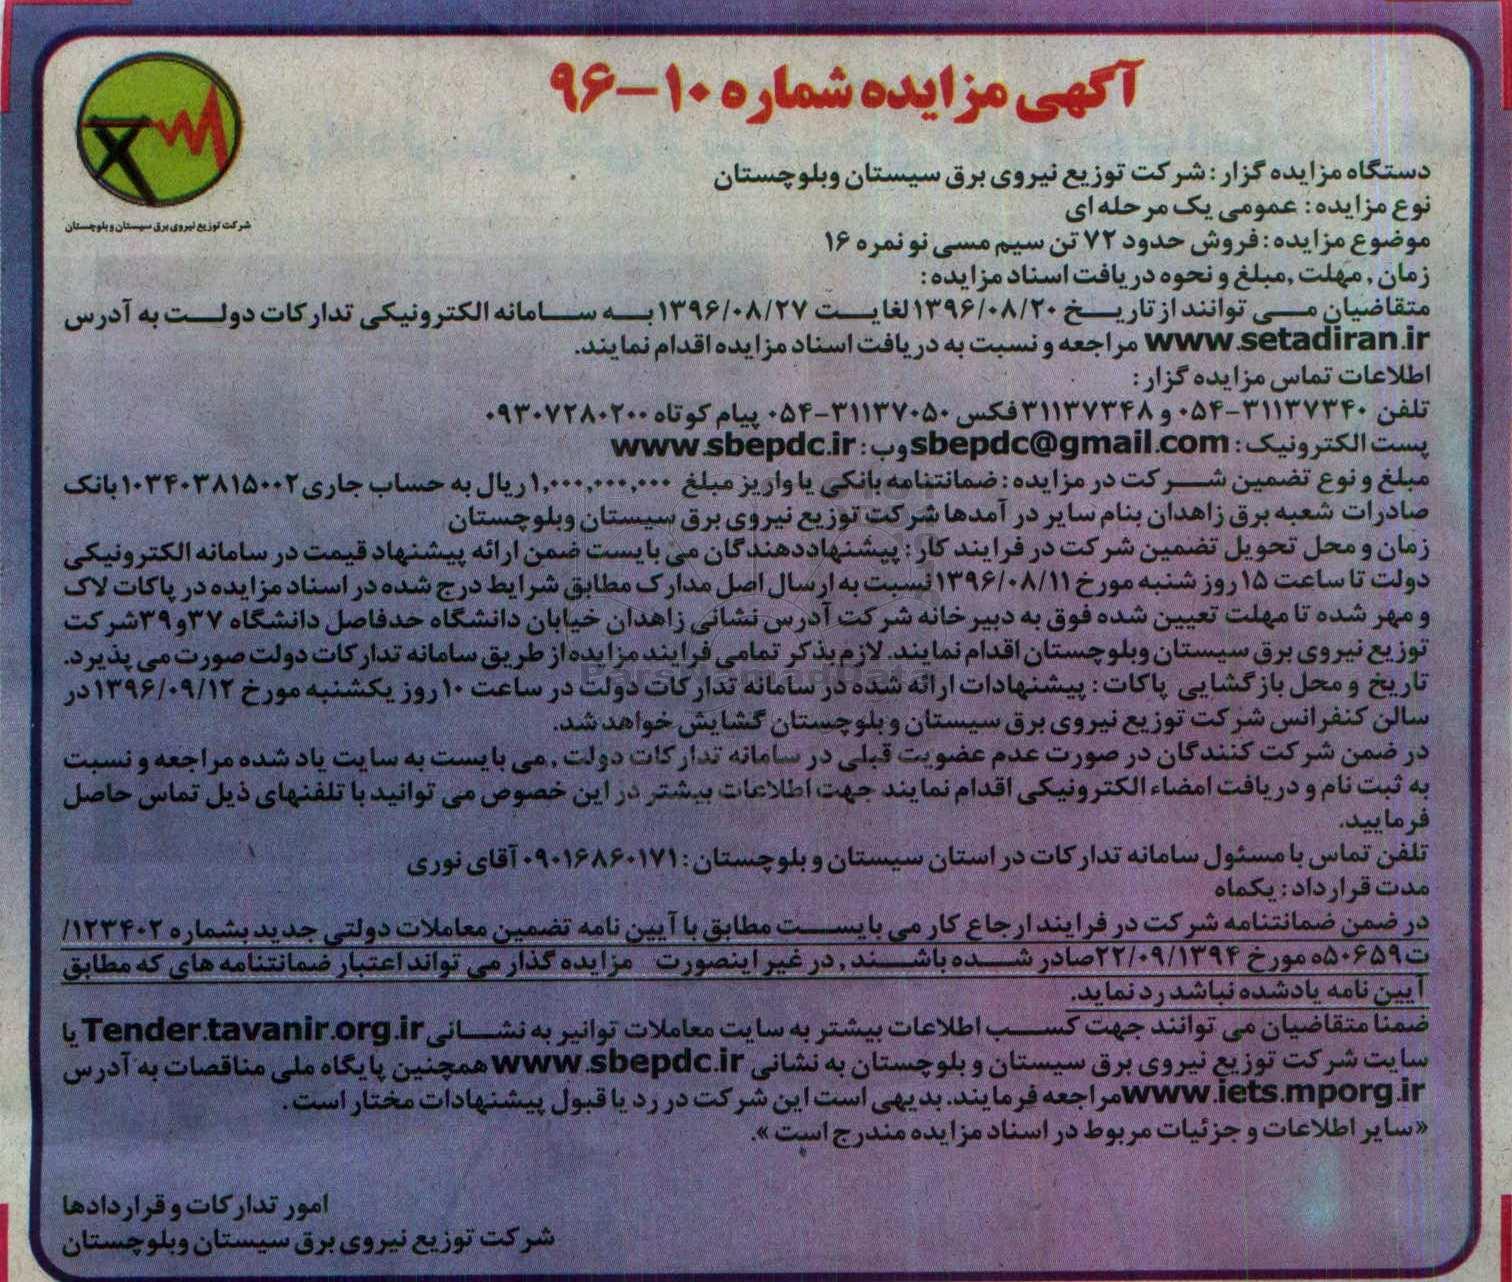 آگهی مزایده شماره ۱۰-۹۶
شرکت توزیع نیروی برق سیستان وبلوچستان
دستگاه مزایده گزار: شرکت توزیع نیروی برق سیستان وبلوچستان
نوع مزایده: عمومی یک مرحله ای
موضوع مزایده: فروش حدود ۷۲ تن سیم مسی نو نمره ۱۶
زمان , مهلت ,مبلغ و نحوه دریافت اسناد مزایده:
متقاضیان می توانند از تاریخ ۱۳۹۶/۰۸/۲۰ لغایت ۱۳۹۶/۰۸/۲۷ به سامانه الکترونیکی تدارکات دولت به آدرس
www.setadiran.ir مراجعه و نسبت به دریافت اسناد مزایده اقدام نمایند.
اطلاعات تماس مزایده گزار:
تلفن ۳۱۱۳۷۳۴۰-۰۵۴ و ۳۱۱۳۷۳۴۸ فکس ۳۱۱۳۷۰۵۰-۰۵۴ پیام کوتاه ۰۹۳۰۷۲۸۰۲۰۰
پست الکترونیک: sbepdc@gmail.com وب: www.sbepdc.ir
مبلغ و نوع تضمین شرکت در مزایده: ضمانتنامه بانکی یا واریز مبلغ ۱,۰۰۰,۰۰۰,۰۰۰ ریال به حساب جاری ۱۰۳۴۰۳۸۱۵۰۰۲ بانک
صادرات شعبه برق زاهدان بنام سایر در آمدها شرکت توزیع نیروی برق سیستان وبلوچستان
زمان و محل تحویل تضمین شرکت در فرایند کار: پیشنهاددهندگان می بایست ضمن ارائه پیشنهاد قیمت در سامانه الکترونیکی
دولت تا ساعت ۱۵ روز شنبه مورخ ۱۳۹۶/۰۸/۱۱ نسبت به ارسال اصل مدارک مطابق شرایط درج شده در اسناد مزایده در پاکات لاک
و مهر شده تا مهلت تعیین شده فوق به دبیرخانه شرکت آدرس نشانی زاهدان خیابان دانشگاه حدفاصل دانشگاه ۳۷و۳۹ شرکت
توزیع نیروی برق سیستان وبلوچستان اقدام نمایند. لازم بذکر تمامی فرایند مزایده از طریق سامانه تدارکات دولت صورت می پذیرد.
تاریخ و محل بازگشایی پاکات: پیشنهادات ارائه شده در سامانه تدارکات دولت در ساعت ۱۰ روز یکشنبه مورخ ۱۳۹۶/۰۹/۱۲ در
سالن کنفرانس شرکت توزیع نیروی برق سیستان و بلوچستان گشایش خواهد شد.
در ضمن شرکت کنندگان در صورت عدم عضویت قبلی در سامانه تدارکات دولت ,می بایست به سایت یاد شده مراجعه و نسبت
به ثبت نام و دریافت امضاء الکترونیکی اقدام نمایند جهت اطلاعات بیشتر در این خصوص می توانید با تلفنهای ذیل تماس حاصل
فرمایید.
تلفن تماس با مسئول سامانه تدارکات در استان سیستان و بلوچستان: ۰۹۰۱۶۸۶۰۱۷۱ آقای نوری
مدت قرارداد: یکماه
در ضمن ضمانتنامه شرکت در فرایند ارجاع کار می بایست مطابق با آیین نامه تضمین معاملات دولتی جدید بشماره ۱۲۳۴۰۲/
ت۵۰۶۵۹ه مورخ ۲۲/۰۹/۱۳۹۴ صادر شده باشند , در غیر اینصورت مزایده گذار می تواند اعتبار ضمانتنامه های که مطابق
آیین نامه یادشده نباشد رد نماید.
ضمنا متقاضیان می توانند جهت کسب اطلاعات بیشتر به سایت معاملات توانیر به نشانی Tender.tavanir.org.ir یا
سایت شرکت توزیع نیروی برق سیستان و بلوچستان به نشانی www.sbepdc.ir همچنین پایگاه ملی مناقصات به آدرس
www.iets.mporg.ir مراجعه فرمایند. بدیهی است این شرکت در رد یا قبول پیشنهادات مختار است.
«سایر اطلاعات و جزئیات مربوط در اسناد مزایده مندرج است».
امور تدارکات و قراردادها
شرکت توزیع نیروی برق سیستان وبلوچستان